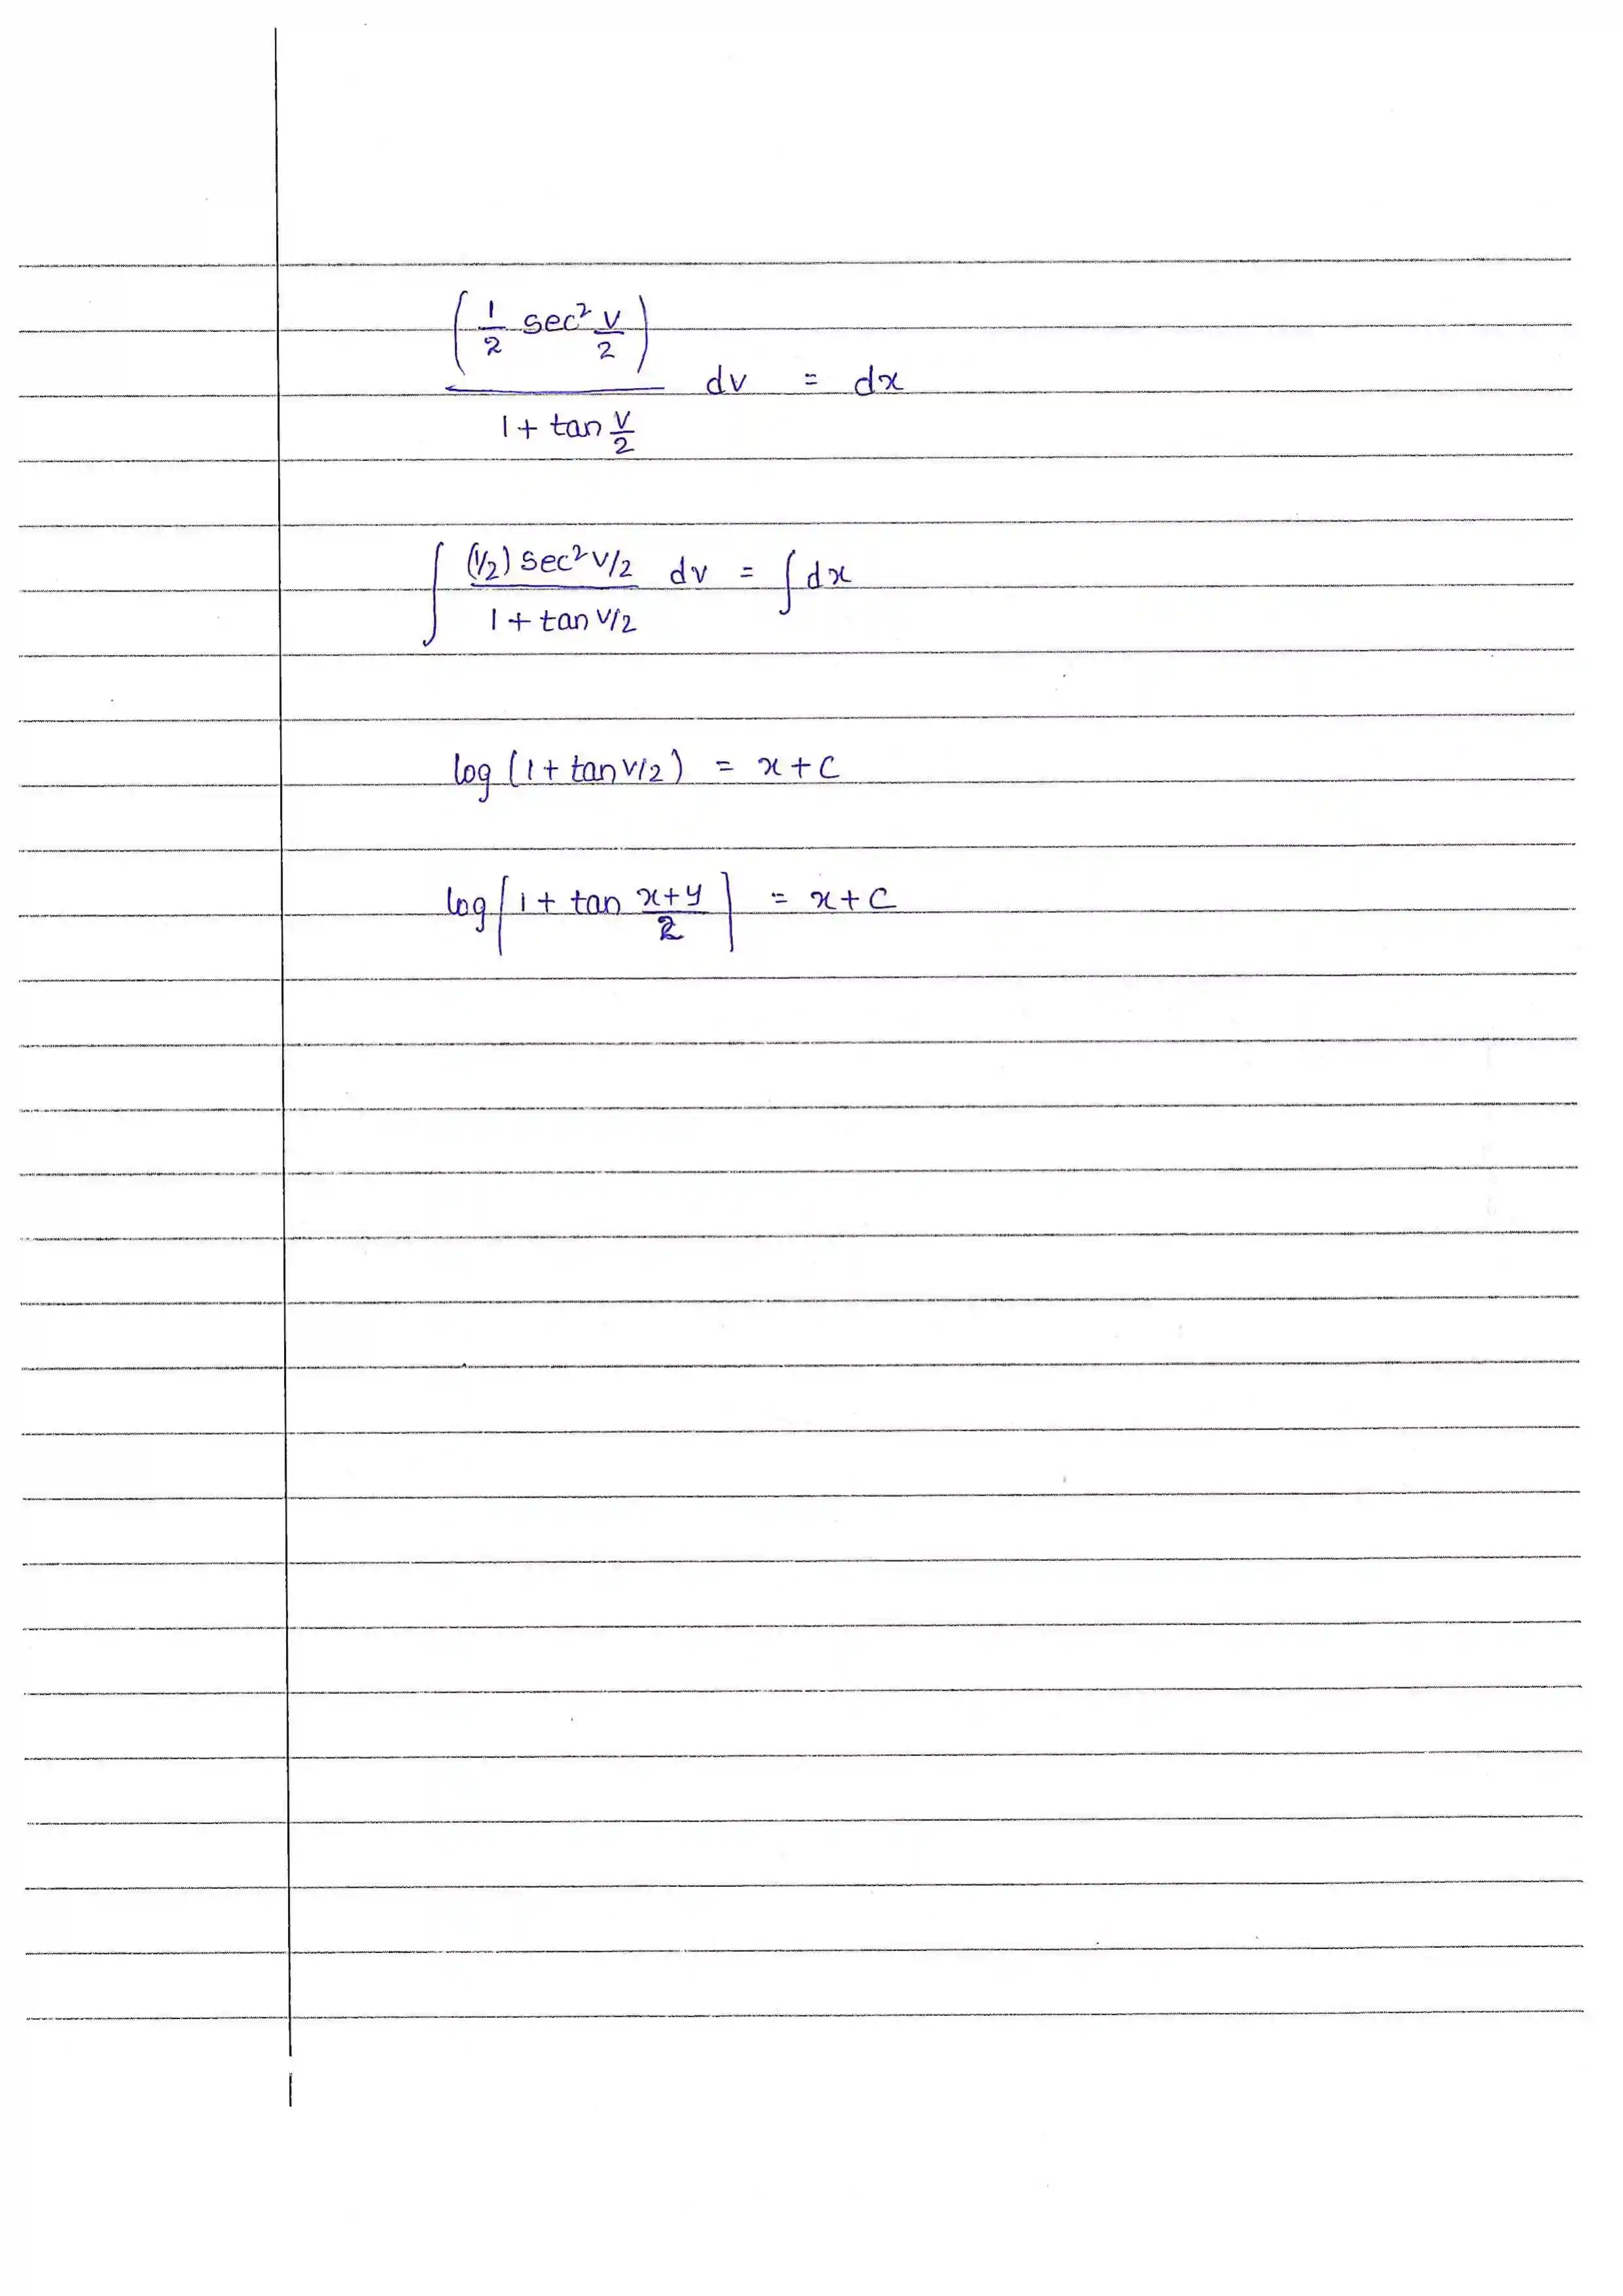 (1/2 sec² v/2) / (1 + tan v/2) dv = dx
∫ (1/2) sec² v/2 / (1 + tan v/2) dv = ∫ dx
log (1 + tan v/2) = x + c
log |1 + tan (x+y)/2| = x + c